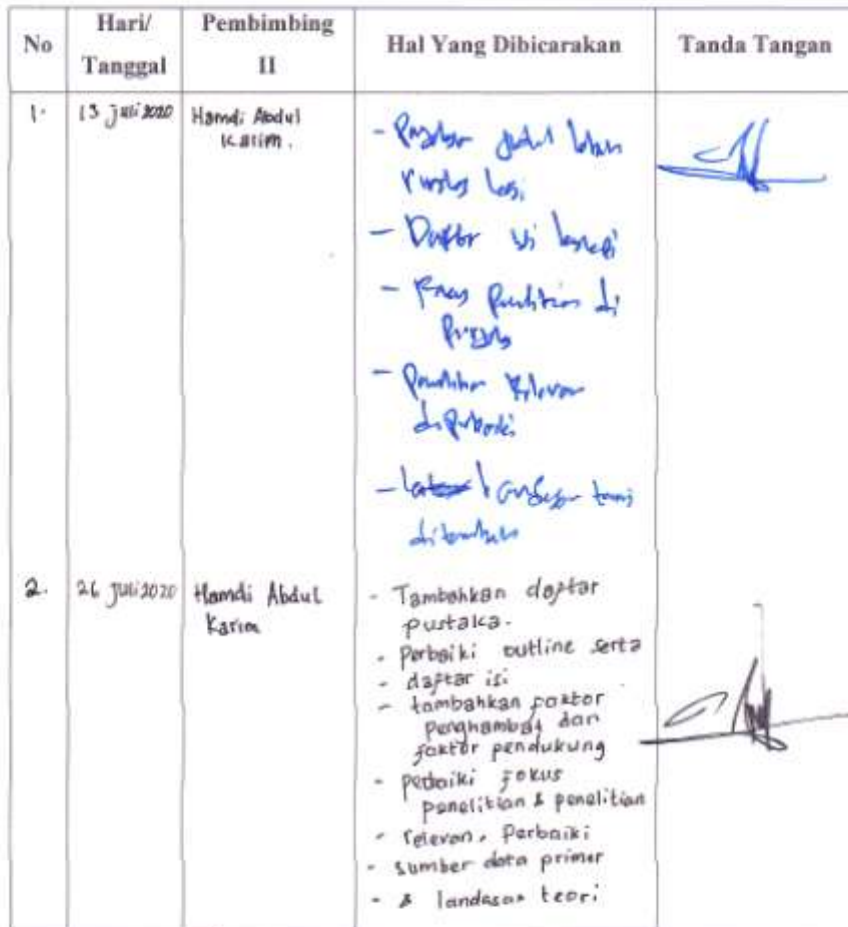 No
Hari/
Tanggal
Pembimbing
II
Hal Yang Dibicarakan
Tanda Tangan
1.
13 Juli 2020
Hamdi Abdul
Karim.
- judul
lagi
- Daftar isi
- penelitian di
- relevan
diperbaiki
-
2.
26 Juli 2020
Hamdi Abdul
Karim
- Tambahkan daftar
pustaka.
- Perbaiki outline serta
- daftar isi
- tambahkan faktor
penghambat dan
faktor pendukung
- perbaiki fokus
penelitian & penelitian
- relevan, Perbaiki
- sumber data primer
- & landasan teori